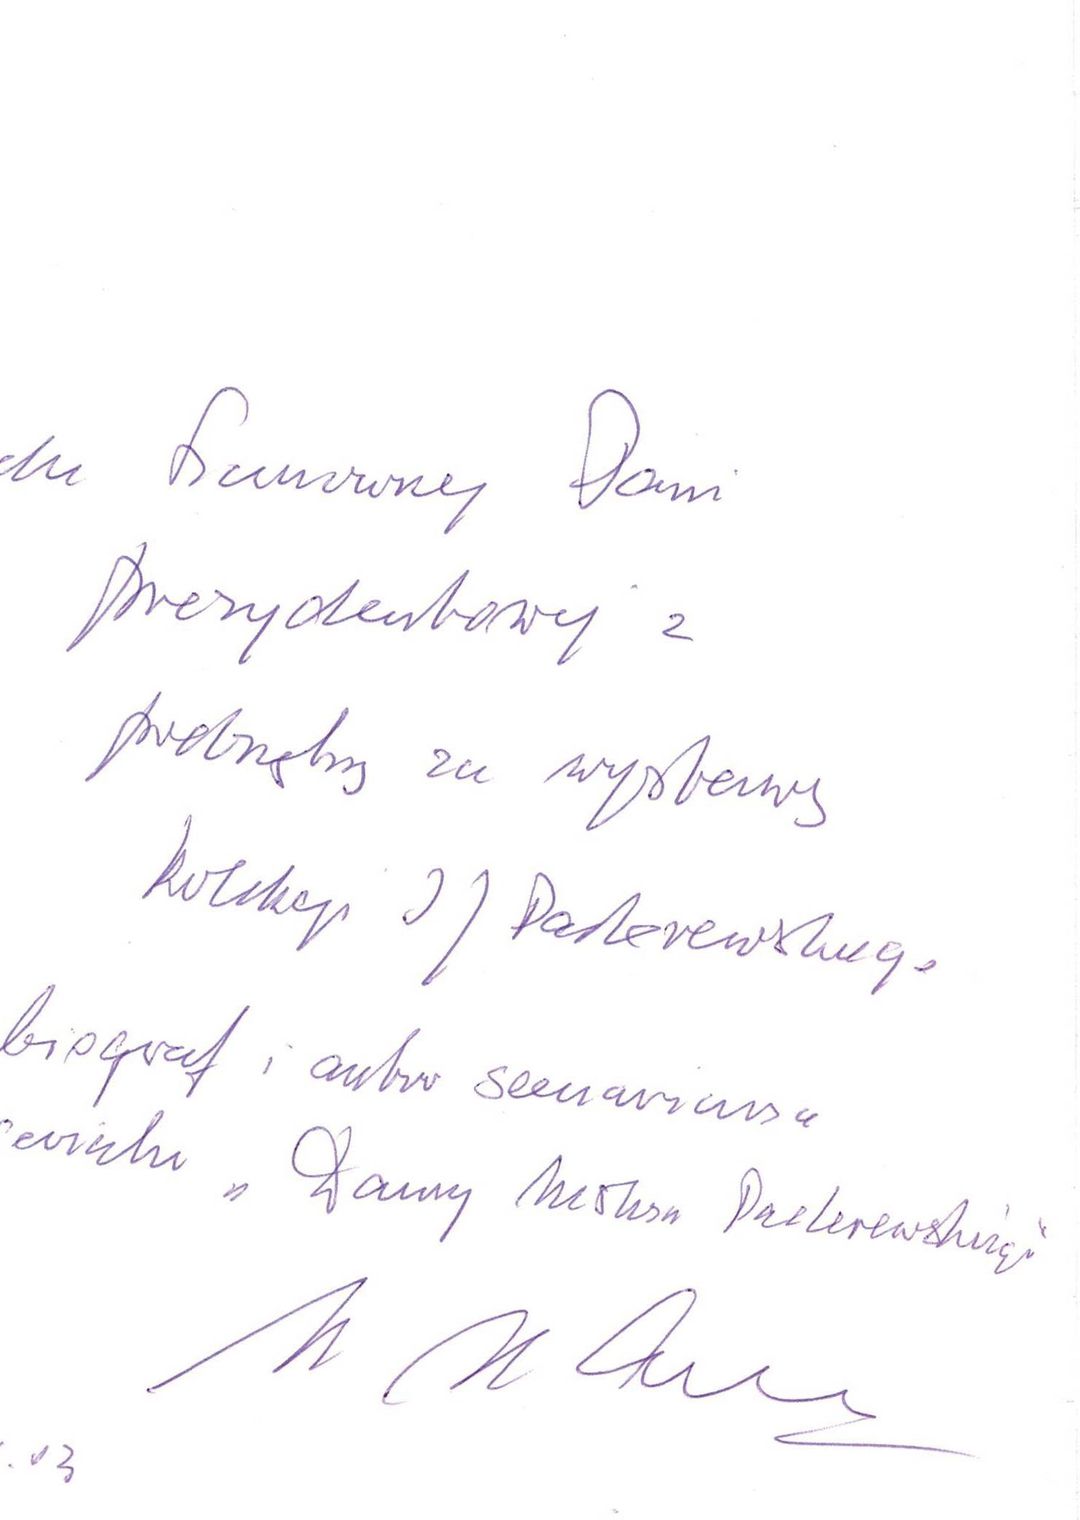 dla Szanownej Pani
prezydentowej z
podzięką za wystawę
Kolekcji I J Paderewskiego
biograf i autor scenariusza
"Damy Mistrza Paderewskiego"
.03